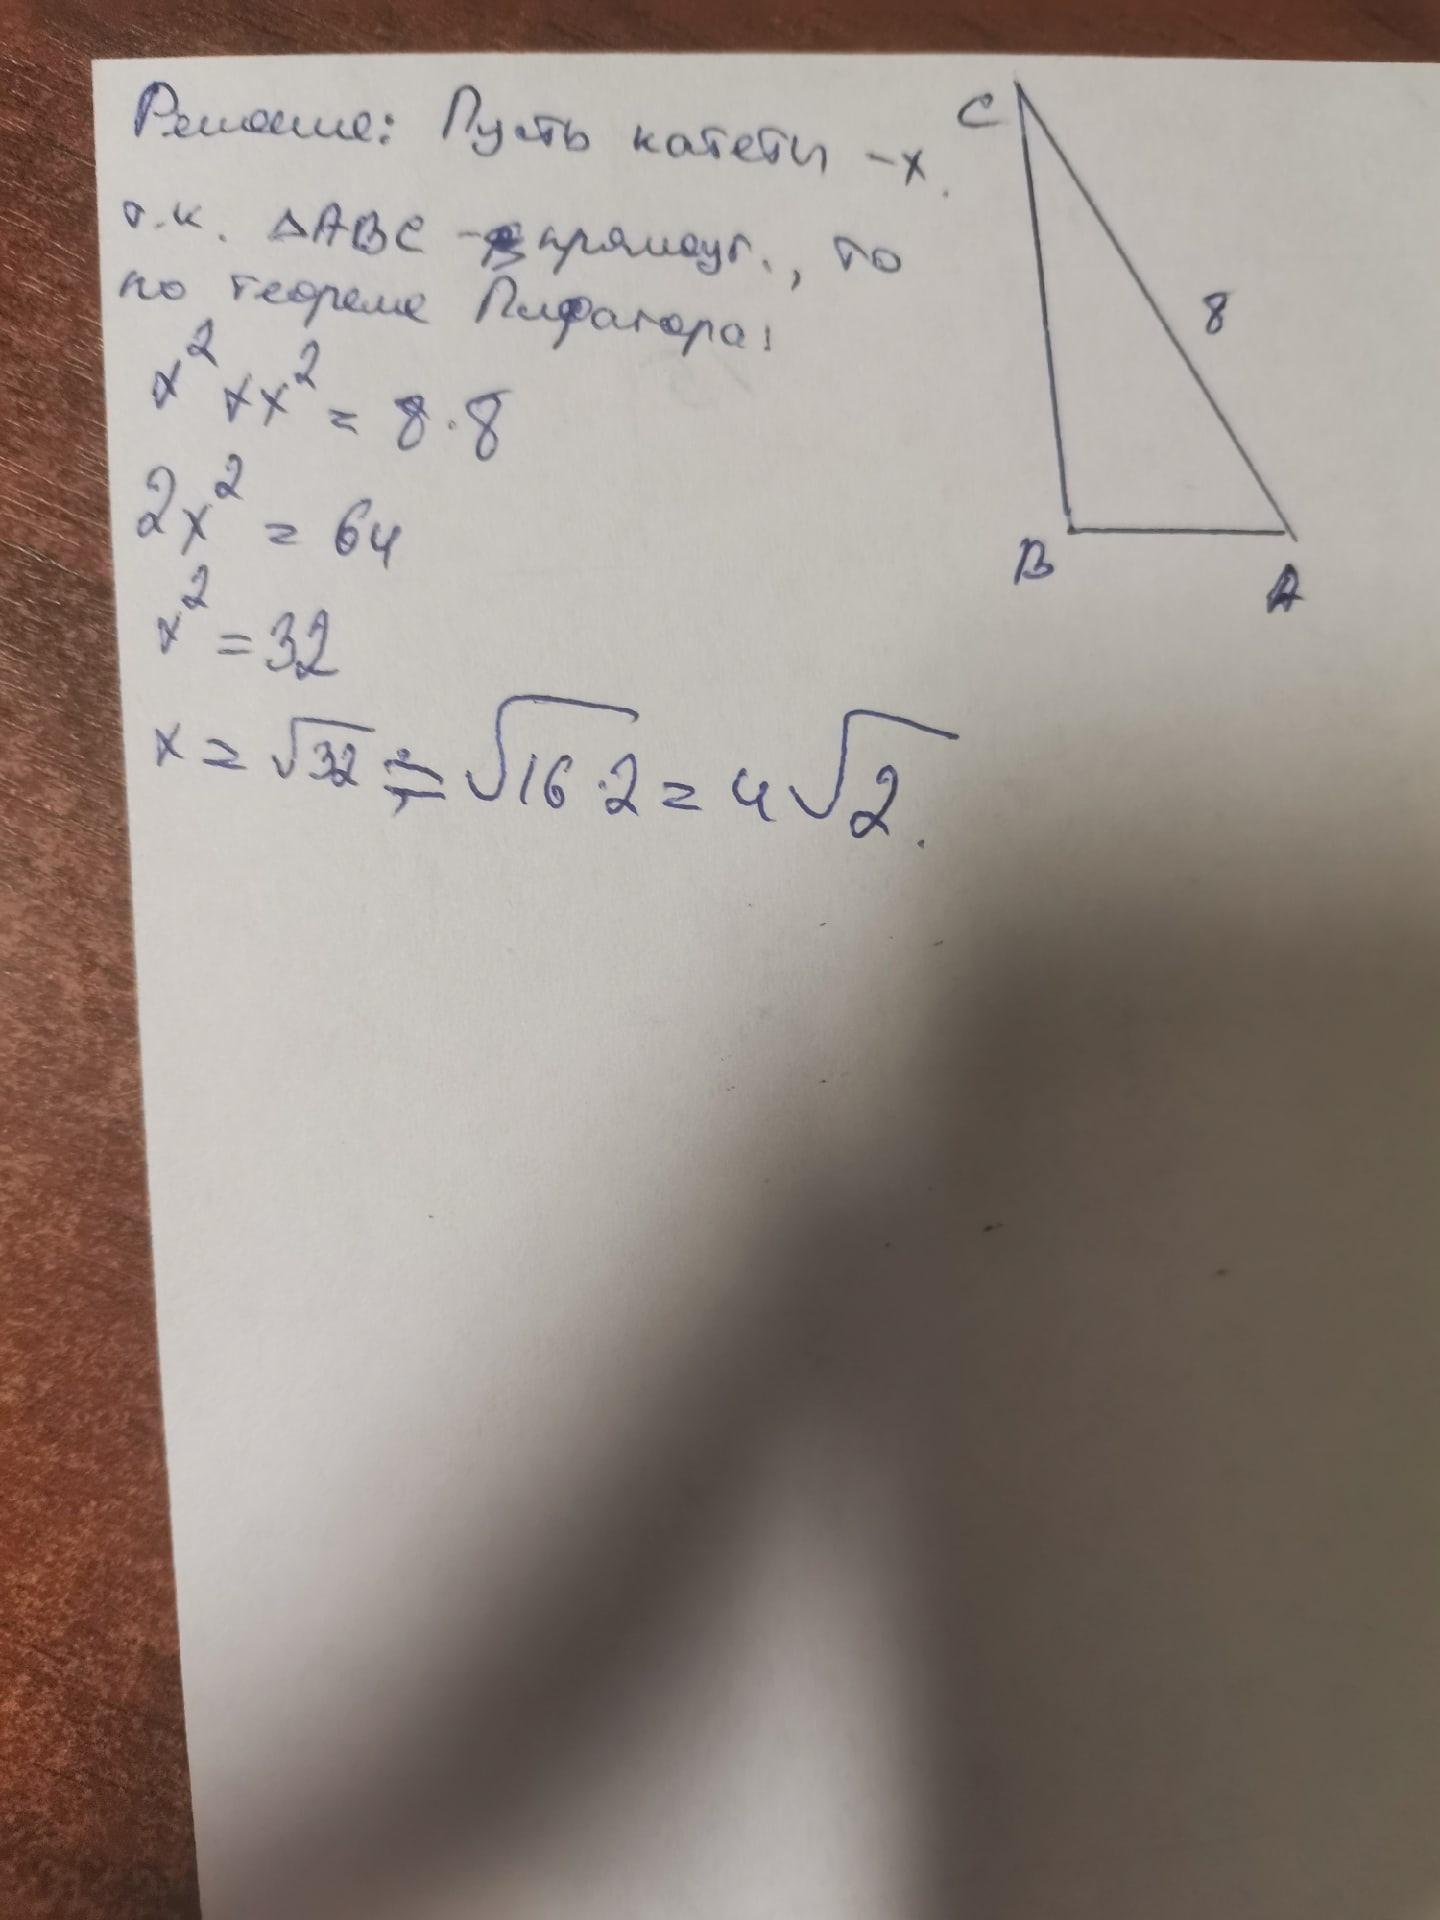 Решение: Пусть катеты - x.
т.к. △ABC - прямоуг., то
по теореме Пифагора:
x² + x² = 8 · 8
2x² = 64
x² = 32
x = √32 = √16·2 = 4√2.
C
8
B
A